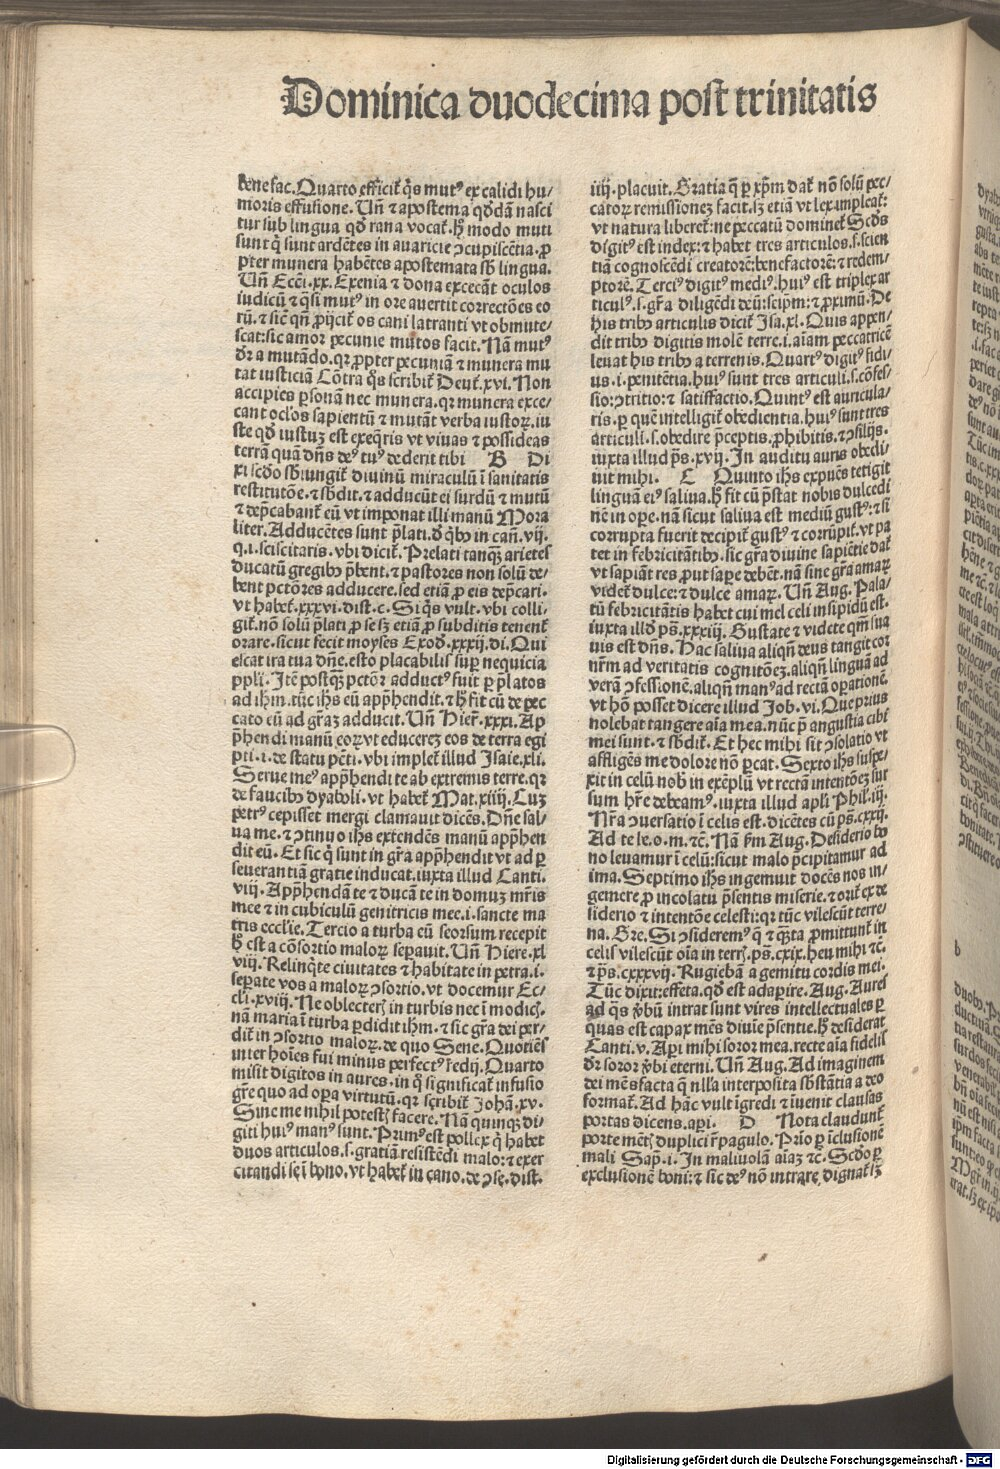 Dominica duodecima post trinitatis
bene fac. Quarto efficit̃ q̃s mutꝰ ex calidi hu/
moris effusione. Vñ ⁊ apostema qđdã nasci
tur sub lingua qđ rana vocat̃. hᷤ modo muti
sunt q̃ sunt ardẽtes in auaricie ↄcupiscẽtia. ꝓ
pter munera habẽtes apostemata sb̃ lingua.
Vñ Ecci. xx. Exenia ⁊ dona excecãt oculos
iudicũ ⁊ q̃si mutꝰ in ore auertit correctões eo
rũ. ⁊ sic̃ qñ ꝓijcit̃ os cani latranti vt obmute/
scat: sic amor pecunie mutos facit. Nã mutꝰ
dr̃ a mutãdo. qꝛ ꝓpter pecuniã ⁊ munera mu
tat iusticiã Cõtra q̃s scribit̃ Deut̃. xvi. Non
accipies ꝑsonã nec munera. qꝛ munera exce/
cant ocl̃os sapientũ ⁊ mutãt verba iustoꝝ. iu
ste qđ iustuꝫ est exeq̃ris vt viuas ⁊ possideas
terrã quã dñs deꝰ tuꝰ dederit tibi B Di
xi scđo sb̃iungit̃ diuinũ miraculũ ĩ sanitatis
restitutõe. ⁊ sb̃dit. ⁊ adducũt ei surdũ ⁊ mutũ
⁊ dep̃cabant̃ eũ vt imponat illi manũ Mora
liter. Adducẽtes sunt p̃lati. đ q̃bꝰ in cañ. vij.
q. i. sciscitaris. vbi dicit̃. Prelati tanq̃ꝫ arietes
ducatũ gregibꝰ p̃bent. ⁊ pastores non solũ de/
bent pctõres adducere. sed etiã ꝓ eis dep̃cari.
vt habet̃. xxxvi. dist. c. Si q̃s vult. vbi colli/
git̃. nõ solũ p̃lati ꝓ se sꝫ etiã ꝓ subditis tenent̃
orare. sicut fecit moyses Exođ. xxxij. di. Qui
escat ira tua dñe. esto placabilis suꝑ nequicia
pp̃li. Itẽ postq̃ꝫ pctõr adductꝰ fuit ꝑ p̃latos
ad ihm̃. tũc ihs̃ eũ app̃hendit. ⁊ hᷤ fit cũ de pec
cato eũ ad gr̃aꝫ adducit. Vñ Hier̃. xxxi. Ap
p̃hendi manũ eoꝝ vt educereꝫ eos de terra egi
pti. i. de statu pc̃ti. vbi implet̃ illud Isaie. xli.
Serue meꝰ app̃hendi te ab extremis terre. qꝛ
de faucibꝰ dyaboli. vt habet̃ Mat. xiiij. Cuꝫ
petrꝰ cepisset mergi clamauit dicẽs. Dñe sal/
ua me. ⁊ ↄtinuo ihs̃ extendẽs manũ app̃hen
dit eũ. Et sic q̃ sunt in gr̃a app̃hendit vt ad ꝑ
seuerantiã gratie inducat. iuxta illud Canti.
viij. App̃hendã te ⁊ ducã te in domuꝫ mr̃is
mee ⁊ in cubiculũ genitricis mee. i. sancte ma
tris eccl̃ie. Tercio a turba eũ seorsum recepit
hᷤ est a cõsortio maloꝝ sepauit. Vñ Hiere. xl
viij. Relinq̃te ciuitates ⁊ habitate in petra. i.
sep̃ate vos a maloꝝ ↄsortio. vt docemur Ec/
cl̃i. xviij. Ne oblecterꝭ in turbis nec ĩ modicꝭ.
nã maria ĩ turba ꝑdidit ihm̃. ⁊ sic gr̃a dei per/
dit̃ in ↄsortio maloꝝ. de quo Sene. Quotiẽs
inter hoĩes fui minus perfectꝰ r̃edij. Quarto
misit digitos in aures. in q̃ significat̃ infusio
gr̃e quo ad oꝑa virtutũ. qꝛ scribit̃ Johã. xv.
Sine me nihil potestꝭ facere. Nã quinqꝫ di/
giti huiꝰ manꝰ sunt. Primꝰ est pollex q̃ habet
duos articulos. s. gratiã resistẽdi malo: ⁊ exer
citandi se ĩ bono. vt habet̃ in cano. de ↄse. dist.
iiij. placuit. Gratia q̃ ꝑ xp̃m dat̃ nõ solũ pec/
catoꝝ remissioneꝫ facit. sꝫ etiã vt lex impleat̃:
vt natura liberet̃: ne peccatũ dominet̃ Scđs
digitꝰ est index: ⁊ habet tres articulos. s. scien
tiã cognoscẽdi creatorẽ: benefactorẽ: ⁊ redem/
ptorẽ. Terciꝰ digitꝰ mediꝰ. huiꝰ est triplex ar
ticulꝰ. s. gr̃a diligẽdi deũ: seip̃m: ⁊ ꝓximũ. De
his tribꝰ articulis dicit̃ Isa. xl. Quis appen/
dit tribꝰ digitis molẽ terre. i. aĩam peccatricẽ
leuat his tribꝰ a terrenis. Quartꝰ digitꝰ fidi/
us. i. penitẽtia. huiꝰ sunt tres articuli. s. cõfes/
sio: ↄtritio: ⁊ satisfactio. Quintꝰ est auricula/
ris. ꝑ quẽ intelligit̃ obedientia. huiꝰ sunt tres
articuli. s. obedire p̃ceptis. ꝓhibitis. ⁊ ↄsilijs.
iuxta illud ps̃. xvij. In auditu auris obedi/
uit mihi. C Quinto ihs̃ expuẽs tetigit
linguã eiꝰ saliua. hᷤ fit cũ p̃stat nobis dulcedi
nẽ in oꝑe. nã sicut saliua est mediũ gustꝰ: ⁊ si
corrupta fuerit decipit̃ gustꝰ ⁊ corrũpit̃. vt pa
tet in febricitãtibꝰ. sic gr̃a diuine sapiẽtie dat̃
vt sapiãt res ꝓut sape debẽt. nã sine gr̃a amaꝝ
videt̃ dulce: ⁊ dulce amaꝝ. Vñ Aug. Pala/
tũ febricitãtis habet cui mel celi insipidũ est.
iuxta illđ ps̃. xxxiij. Gustate ⁊ videte qm̃ sua
uis est dñs. Hac saliua aliqñ deus tangit cor
nr̃m ad veritatis cognitõeꝫ. aliqñ linguã ad
verã ↄfessionẽ. aliqñ manꝰ ad rectã oꝑationẽ.
vt hõ posset dicere illud Job. vi. Que prius
nolebat tangere aĩa mea. nũc p̃ angustia cibi
mei sunt. ⁊ sb̃dit̃. Et hec mihi sit ↄsolatio vt
affligẽs me dolore nõ ꝑcat. Sexto ihs̃ suspe/
xit in celũ nob̃ in exẽplũ vt rectã intentõeꝫ sur
sum hr̃e debeamꝰ. iuxta illud apl̃i Phil. iij.
Nr̃a ↄuersatio ĩ celis est. dicẽtes cũ ps̃. cxxij.
Ad te le. o. m. ⁊c̃. Nã p̃m Aug. Desiderio bo
no leuamur ĩ celũ: sicut malo p̃cipitamur ad
ima. Septimo ihs̃ ingemuit docẽs nos in/
gemere ꝓ incolatu p̃sentis miserie. ⁊ orit̃ ex de
siderio ⁊ intentõe celesti: qꝛ tũc vilescũt terre/
na. Gre. Si ↄsideremꝰ q̃ ⁊ q̃ꝫta ꝓmittunt̃ in
celis vilescũt oĩa in terrꝭ. ps̃. cxix. heu mihi ⁊c̃.
⁊ ps̃. cxxxvij. Rugiebã a gemitu cordis mei.
Tũc dixit: effeta. qđ est adaꝑire. Aug. Aures
ad q̃s v̓bũ intrat sunt vires intellectuales ꝑ
quas est capax mẽs diuie p̃sentie. hᷤ desiderat
Canti. v. Aꝑi mihi soror mea. recte aĩa fidelis
dr̃ soror v̓bi eterni. Vñ Aug. Ad imaginem
dei mẽs facta q̃ nl̃la interposita sb̃stãtia a deo
format̃. Ad hãc vult ĩgredi ⁊ ĩuenit clausas
portas dicens. aꝑi. D Nota claudunt̃
porte mẽtꝭ duplici r̃pagulo. Prĩo ꝑ ĩclusionẽ
mali Sap̃. i. In maliuolã aĩaꝫ ⁊c̃. Scđo ꝑ
exclusionẽ boni: ⁊ sic deꝰ nõ intrare dignat̃ sꝫ
b
Digitalisierung gefördert durch die Deutsche Forschungsgemeinschaft - DFG